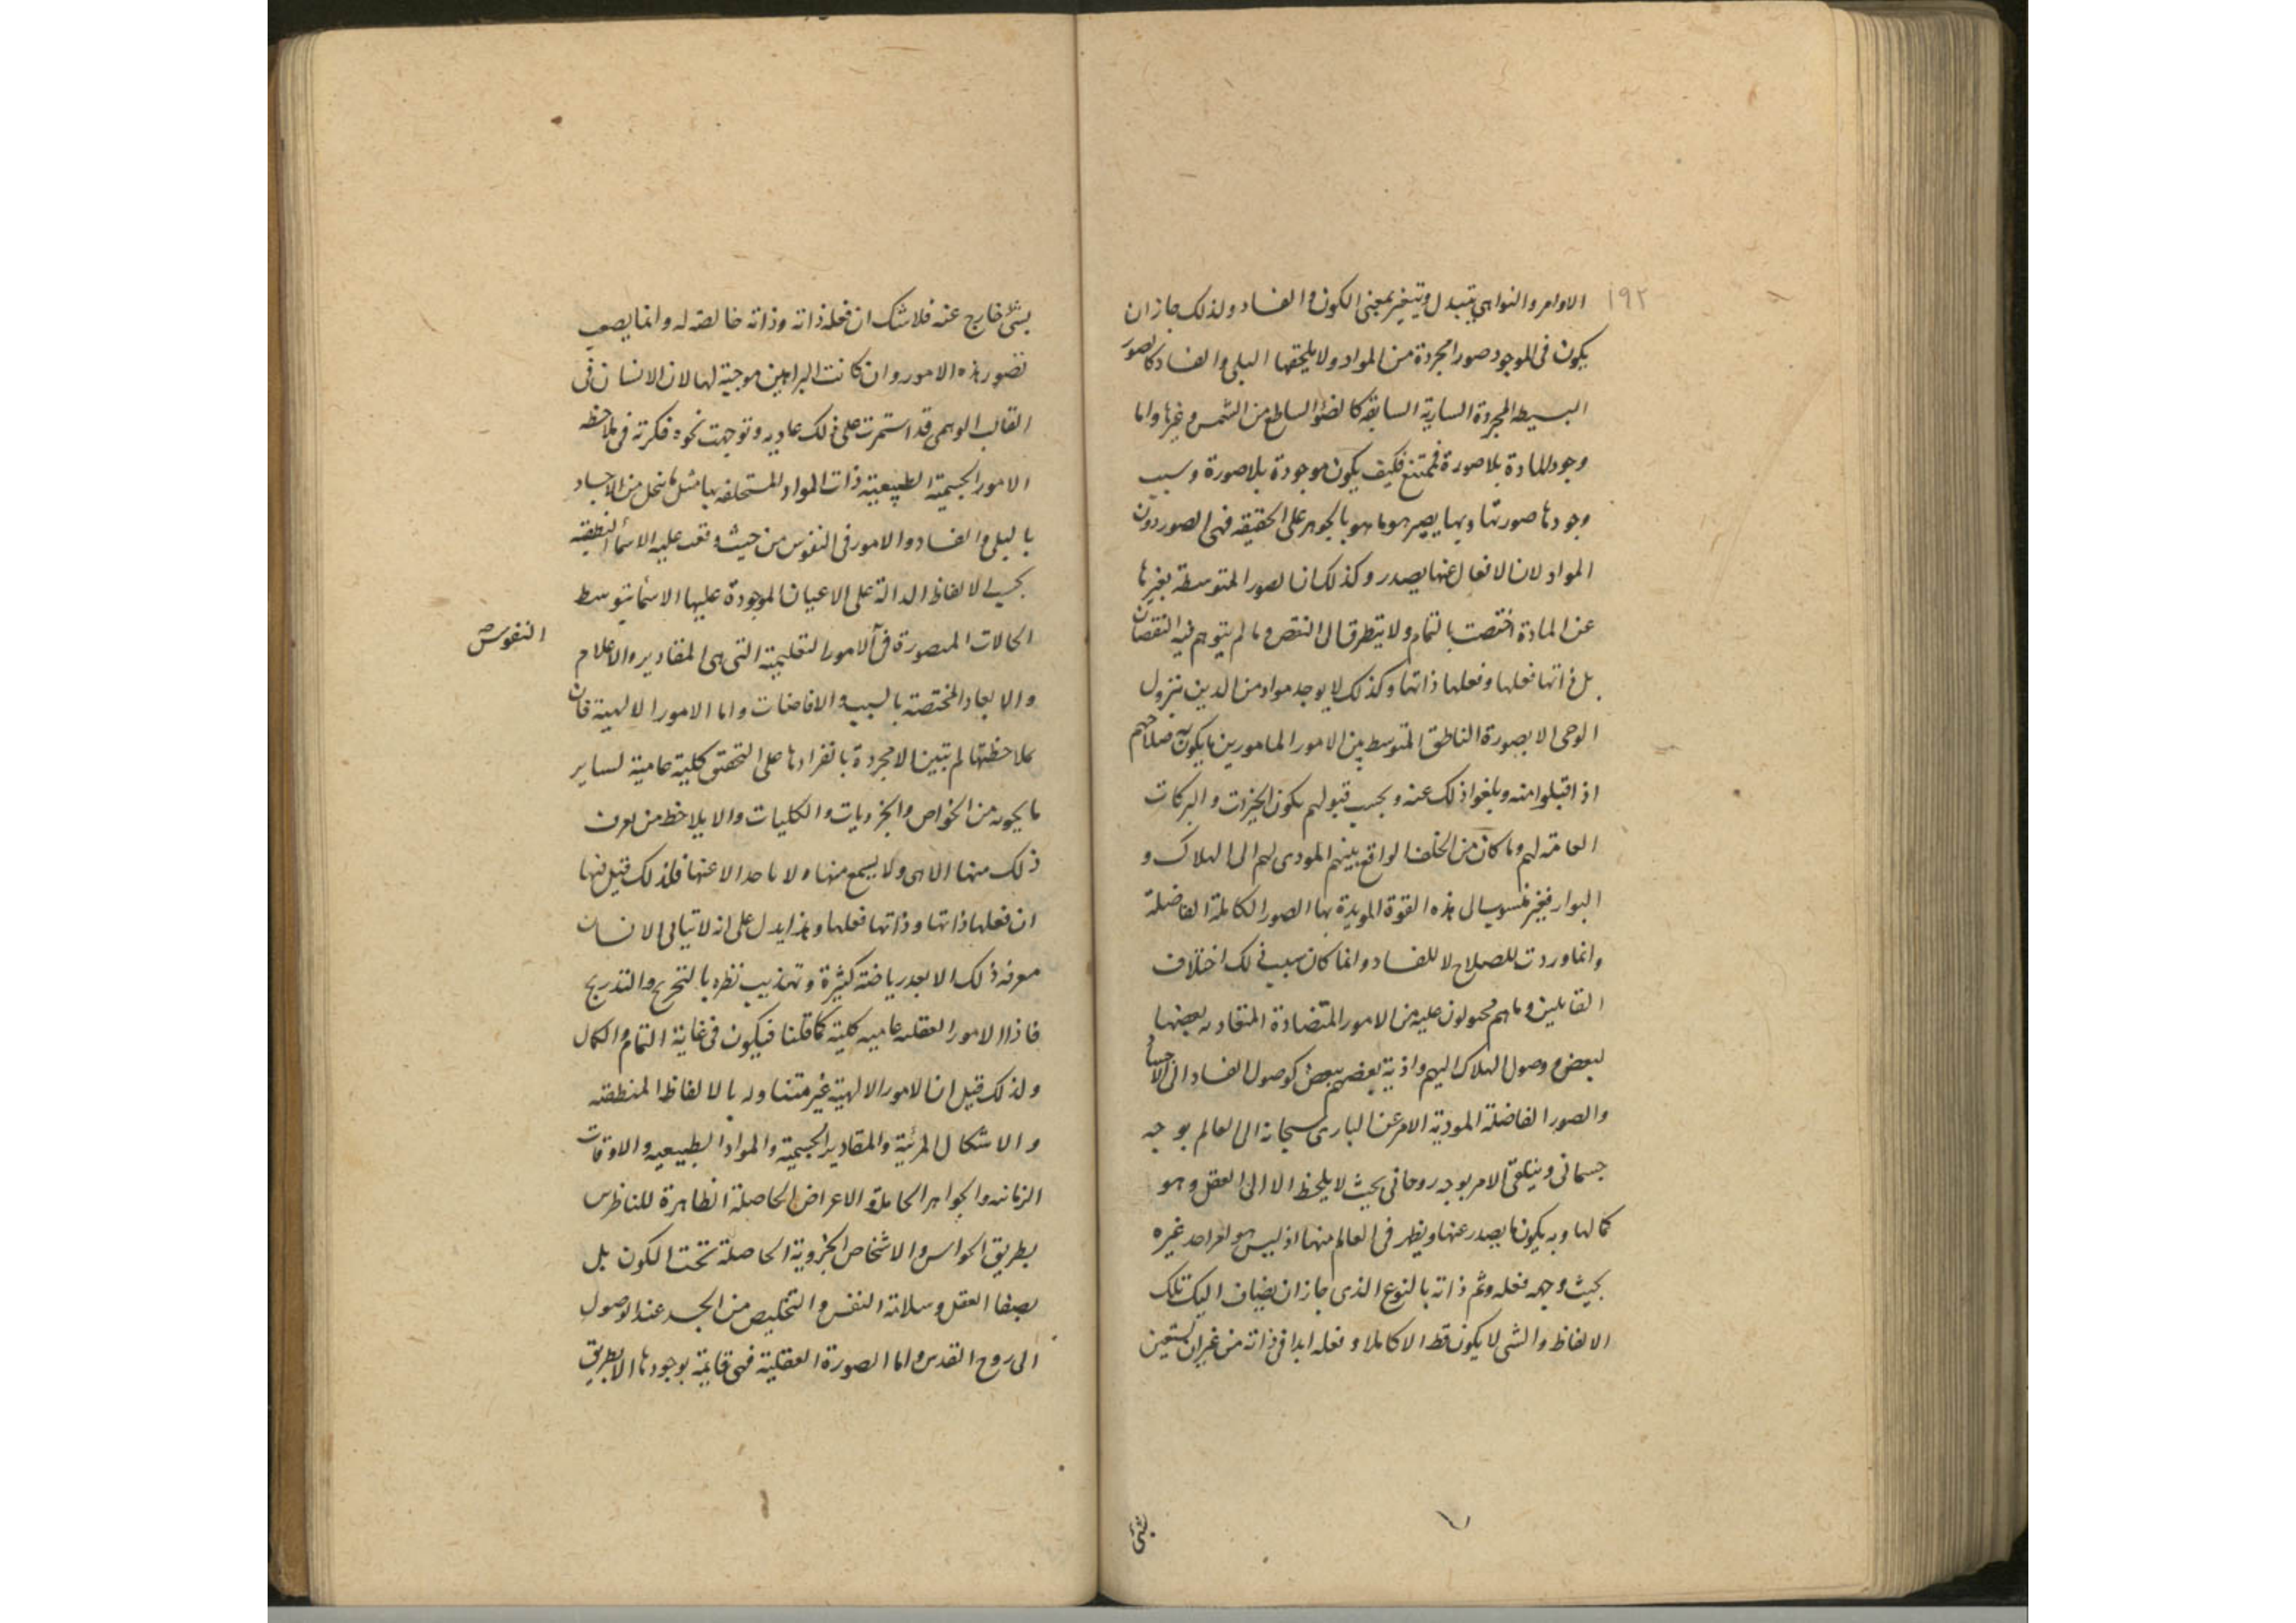 ١٩٢
الاوامر والنواهي يتبدل ويتغير بمعنى الكون والفساد ولذلك جاز ان
يكون فى الموجود صورا مجردة من المواد ولا يلحقها البلى والفساد كالصور
البسيطه المجردة السارية السابقة كالضؤ الساطع من الشمس وغيرها واما
وجود المادة بلا صورة فممتنع فكيف يكون موجودة بلا صورة وسبب
وجودها صورتها وبها يصير هو ما هو بالجوهر على الحقيقه فهى الصور دون
المواد لان الافعال عنها يصدر وكذلك ان الصور المتوسطة بغيرها
عن المادة اختصت بالتمام ولا يتطرق الى النقص وما لم يتوهم فيه النقصان
بل ذاتها فعلها وفعلها ذاتها وكذلك لا يوجد مواد من الدين بنزول
الوحى الا بصورة الناطق المتوسط بين الامور المامورين ما يكون به صلاحهم
اذا قبلوا منه وبلغوا ذلك عنه وبحسب قبولهم يكون الخيرات والبركات
العامة لهم وما كان من الخلف الواقع بينهم المودى لهم الى الهلاك و
البوار فغير منسوب الى هذه القوة المويدة بها الصور الكاملة الفاضلة
وانما وردت للصلاح لا للفساد وانما كان سبب ذلك اختلاف
القابلين وما هم محمولون عليه من الامور المتضادة المتعادية بعضها
لبعض ووصول الهلاك اليهم واذية بعضهم ببعض كوصول الفساد الى الاجساد
والصور الفاضلة المودية الامر عن البارى سبحانه الى العالم بوجه
جسمانى ويتلقى الامر بوجه روحانى بحيث لا يلحظ الا الى العقل وهو
كمالها وبه يكون ما يصدر عنها ويظهر فى العالم منها اذ ليس هو لواحد غيره
بحيث وجهه فعله وثم ذاته بالنوع الذى جاز ان يضاف اليك تلك
الالفاظ والشى لا يكون قط الا كاملا وفعله ابدا فى ذاته من غير ان يستعين
شئ
بشئ خارج عنه فلا شك ان فعله ذاته وذاته خالصة له وانما يصعب
تصور هذه الامور وان كانت البراهين موجبة لها لان الانسان فى
القالب الوهمى قد استمرت على ذلك عاديه وتوجهت نحوه فكرته فى ملاحظه
الامور الجسمية الطبيعية ذات المواد المستحلفه بها مثل ما ينحل من الاجساد
بالبلى والفساد والامور فى النفوس من حيث وقعت عليه الاسمأ المنطقية
بحسب الالفاظ الدالة على الاعيان الموجودة عليها الاسمأ بتوسط
الحالات المتصورة فى الامور التعليمية التى هى المقادير والاعلام
النفوس
والابعاد المختصة بالسبب والافاضات واما الامور الالهية فان
ملاحظتها لم تبين الا مجردة بانفرادها على التحقق كلية عامية لساير
ما يحويه من الخواص والجزويات والكليات والا يلاحظ من يعرف
ذلك منها الا هى ولا يسمع منها ولا باحد الا عنها فلذلك قيل فيها
ان فعلها ذاتها وذاتها فعلها وهذا يدل على انه لا تيالى الانسان
معرفة ذلك الا بعد رياضة كثيرة وتهذيب نظره بالتخريج والتدريج
فاذا الامور العقليه عاميه كلية كما قلنا فيكون فى غاية التمام والكمال
ولذلك قيل ان الامور الالهية غير متناوله بالالفاظ المنطقية
والاشكال المرئية والمقادير الجسمية والمواد الطبيعيه والاوقات
الزمانيه والجواهر الحاملة والاعراض الحاصلة الظاهرة للناظرين
بطريق الحواس والاشخاص الجزوية الحاصلة تحت الكون بل
بصفا العقل وسلامة النفس والتخليص من الجسد عند الوصول
الى روح القدس واما الصورة العقلية فهى قايمة بوجودها الا بطريق